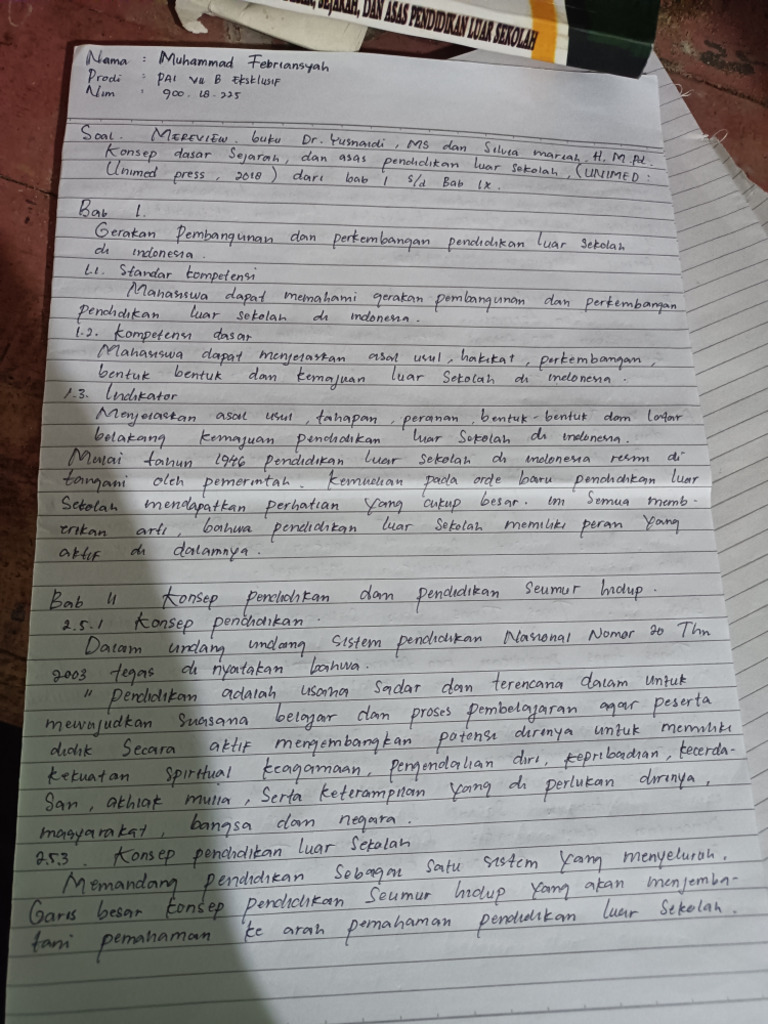 SEJARAH, DAN ASAS PENDIDIKAN LUAR SEKOLAH
Nama : Muhammad Febriansyah
Prodi : PAI VII B Eksklusif
Nim : 900.18.225
Soal. MEREVIEW. buku Dr. Yusnaidi, MS dan Silvia mariah, H. M.Pd.
Konsep dasar Sejarah, dan asas pendidikan luar sekolah, (UNIMED:
Unimed press, 2018) dari bab I s/d Bab IX.
Bab 1.
Gerakan Pembangunan dan perkembangan pendidikan luar Sekolah
di indonesia.
1.1. Standar kompetensi
Mahasiswa dapat memahami gerakan pembangunan dan perkembangan
pendidikan luar sekolah di indonesia.
1.2. Kompetensi dasar
Mahasiswa dapat menjelaskan asal usul, hakikat, perkembangan,
bentuk bentuk dan kemajuan luar Sekolah di indonesia.
1.3. Indikator
Menjelaskan asal usul, tahapan, peranan, bentuk-bentuk dan latar
belakang kemajuan pendidikan luar Sekolah di indonesia.
Mulai tahun 1946 pendidikan luar sekolah di indonesia resmi di
tangani oleh pemerintah. Kemudian pada orde baru pendidikan luar
Sekolah mendapatkan perhatian yang cukup besar. ini Semua memb-
erikan arti, bahwa pendidikan luar sekolah memiliki peran yang
aktif di dalamnya.
Bab II Konsep pendidikan dan pendidikan Seumur hidup.
2.5.1 Konsep pendidikan.
Dalam undang undang sistem pendidikan Nasional Nomor 20 Thn
2003 tegas di nyatakan bahwa.
" pendidikan adalah usaha sadar dan terencana dalam untuk
mewujudkan suasana belajar dan proses pembelajaran agar peserta
didik Secara aktif mengembangkan potensi dirinya untuk memiliki
kekuatan spiritual keagamaan, pengendalian diri, kepribadian, kecerda-
san, akhlak mulia, serta keterampilan yang di perlukan dirinya,
masyarakat, bangsa dan negara.
2.5.3. Konsep pendidikan luar Sekolah
Memandang pendidikan Sebagai Satu sistem yang menyeluruh.
Garis besar konsep pendidikan Seumur hidup yang akan menjemba-
tani pemahaman ke arah pemahaman pendidikan luar Sekolah.